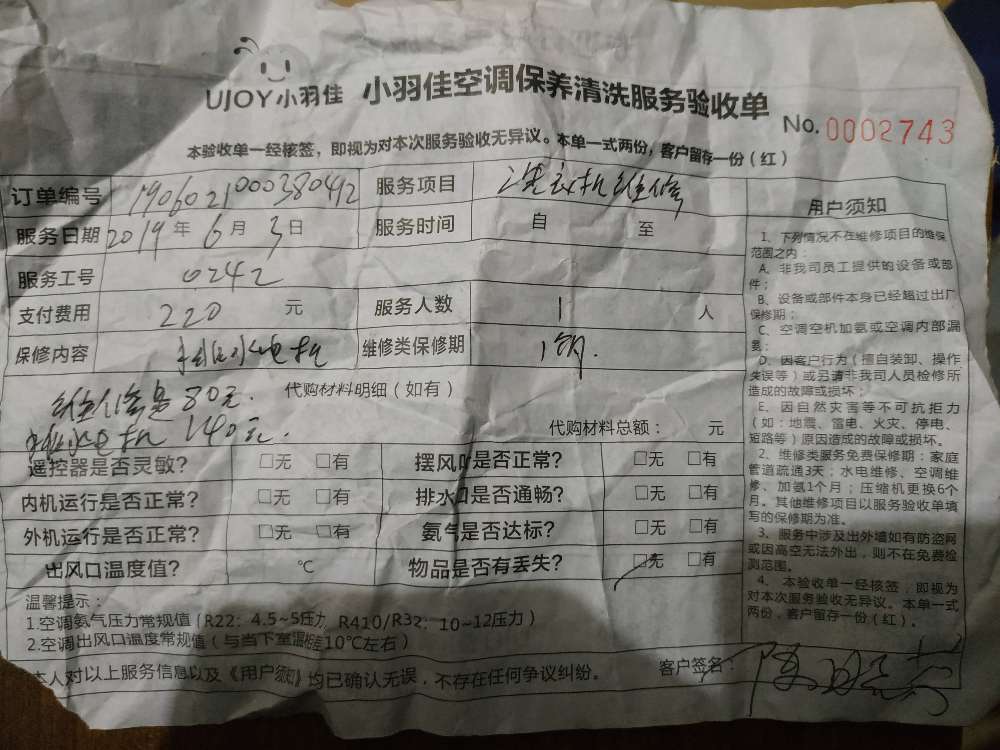 UJOY小羽佳 小羽佳空调保养清洗服务验收单
No. 0002743
本验收单一经核签，即视为对本次服务验收无异议。本单一式两份，客户留存一份（红）
订单编号 190602100380492 服务项目 洗衣机维修
服务日期 2019年6月3日 服务时间 自 至
服务工号 0242
支付费用 220 元 服务人数 1 人
保修内容 排水电机 维修类保修期 1个月.
代购材料明细（如有）
维修费80元.
排水电机140元.
代购材料总额： 元
遥控器是否灵敏？ □无 □有 摆风叶是否正常？ □无 □有
内机运行是否正常？ □无 □有 排水口是否通畅？ □无 □有
外机运行是否正常？ □无 □有 氨气是否达标？ □无 □有
出风口温度值？ ℃ 物品是否有丢失？ □无 □有
温馨提示：
1.空调氨气压力常规值（R22：4.5~5压力，R410/R32：10~12压力）
2.空调出风口温度常规值（与当下室温相差10℃左右）
本人对以上服务信息以及《用户须知》均已确认无误，不存在任何争议纠纷。
客户签名：
用户须知
1、下列情况不在维修项目的维保
范围之内：
A、非我司员工提供的设备或部
件；
B、设备或部件本身已经超过出厂
保修期；
C、空调空机加氨或空调内部漏
氨；
D、因客户行为（擅自装卸、操作
失误等）或另请非我司人员检修所
造成的故障或损坏；
E、因自然灾害等不可抗拒力
（如：地震、雷电、火灾、停电、
短路等）原因造成的故障或损坏。
2、维修类服务免费保修期：家庭
管道疏通3天；水电维修、空调维
修、加氨1个月；压缩机更换6个
月。其他维修项目以服务验收单填
写的保修期为准。
3、服务中涉及出外墙如有防盗网
或因高空无法外出，则不在免费检
测范围。
4、本验收单一经核签，即视为
对本次服务验收无异议。本单一式
两份，客户留存一份（红）。